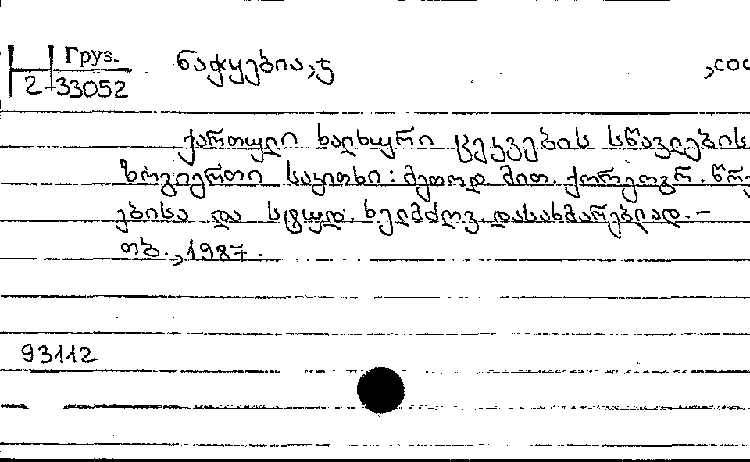 Груз.
2-33052
ნაჭყებია, ე , сос
ქართული ხალხური ცეკვების სწავლების
ზოგიერთი საკითხი: მეთოდ. მით. ქორეოგრ. წრე
ების და სტუდ. ხელმძღვ. დასახმარებლად. –
თბ., 1987.
93112